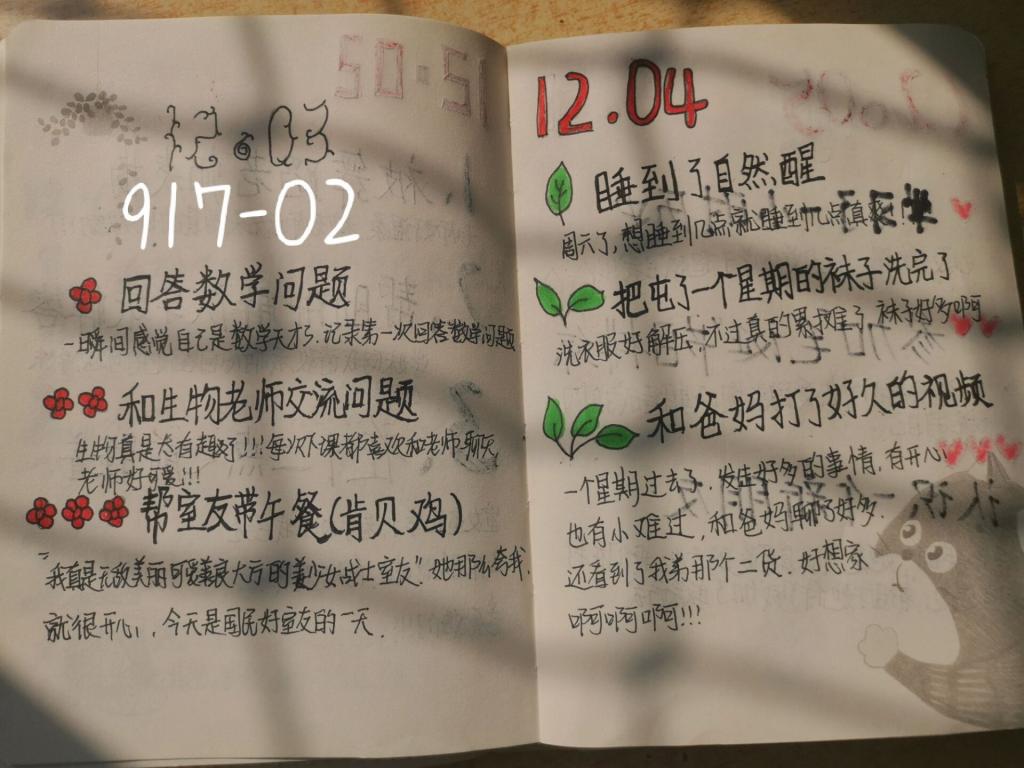 12.03
917-02
回答数学问题
一瞬间感觉自己是数学天才了.记录第一次回答数学问题
和生物老师交流问题
生物真是太有趣了!!!每次下课都喜欢和老师聊天
老师好可爱!!!
帮室友带午餐(肯贝鸡)
"我真是无敌美丽可爱善良大方的美少女战士室友"她那么夸我.
就很开心,今天是国民好室友的一天.
12.04
睡到了自然醒
周六了,想睡到几点就睡到几点真爽!
把屯了一个星期的袜子洗完了
洗衣服好解压,不过真的累挂难了,袜子好多啊啊
和爸妈打了好久的视频
一个星期过去了.发生好多的事情,有开心
也有小难过,和爸妈聊了好多.
还看到了我弟那个二货.好想家
啊啊啊啊啊!!!